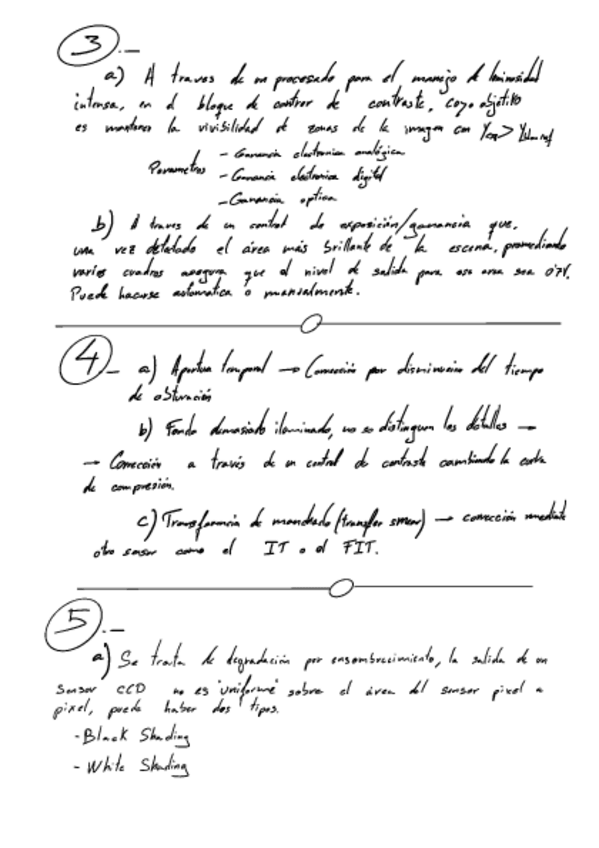 3.—
a) A traves de un procesado para el manejo de luminosidad
intensa, en el bloque de control de contraste, cuyo objetivo
es mantener la vivisilidad de zonas de la imagen con Y >
Parametros - Ganancia electronica analógica
- Ganancia electronica digital
- Ganancia optica
b) A traves de un control de exposición/ganancia que,
una vez detectado el área más brillante de la escena, promediando
varios cuadros asegura que el nivel de salida para esa area sea 0'7V.
Puede hacerse automatica o manualmente.
4- a) Apertura temporal → Corrección por disminución del tiempo
de obturación
b) Fondo demasiado iluminado, no se distinguen los detalles →
→ Corrección a través de un control de contraste cambiando la curva
de compresión.
c) Transferencia de manchado (transfer smear) → corrección mediante
otro sensor como el IT o el FIT.
5.—
a) Se trata de degradación por ensombrecimiento, la salida de un
sensor CCD no es "uniforme" sobre el área del sensor pixel a
pixel, puede haber dos tipos.
- Black Shading
- White Shading